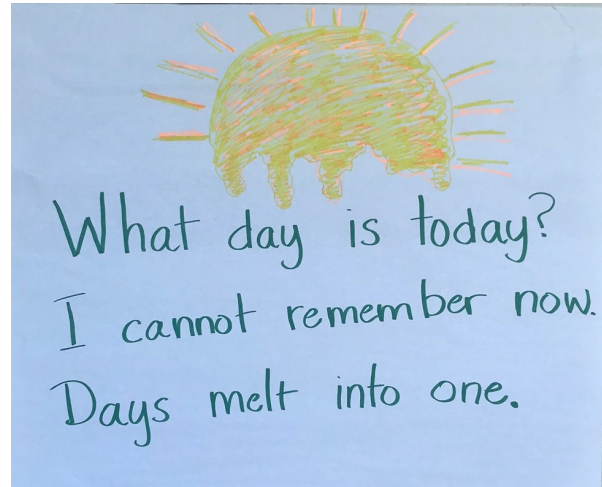 What day is today?
I cannot remember now.
Days melt into one.